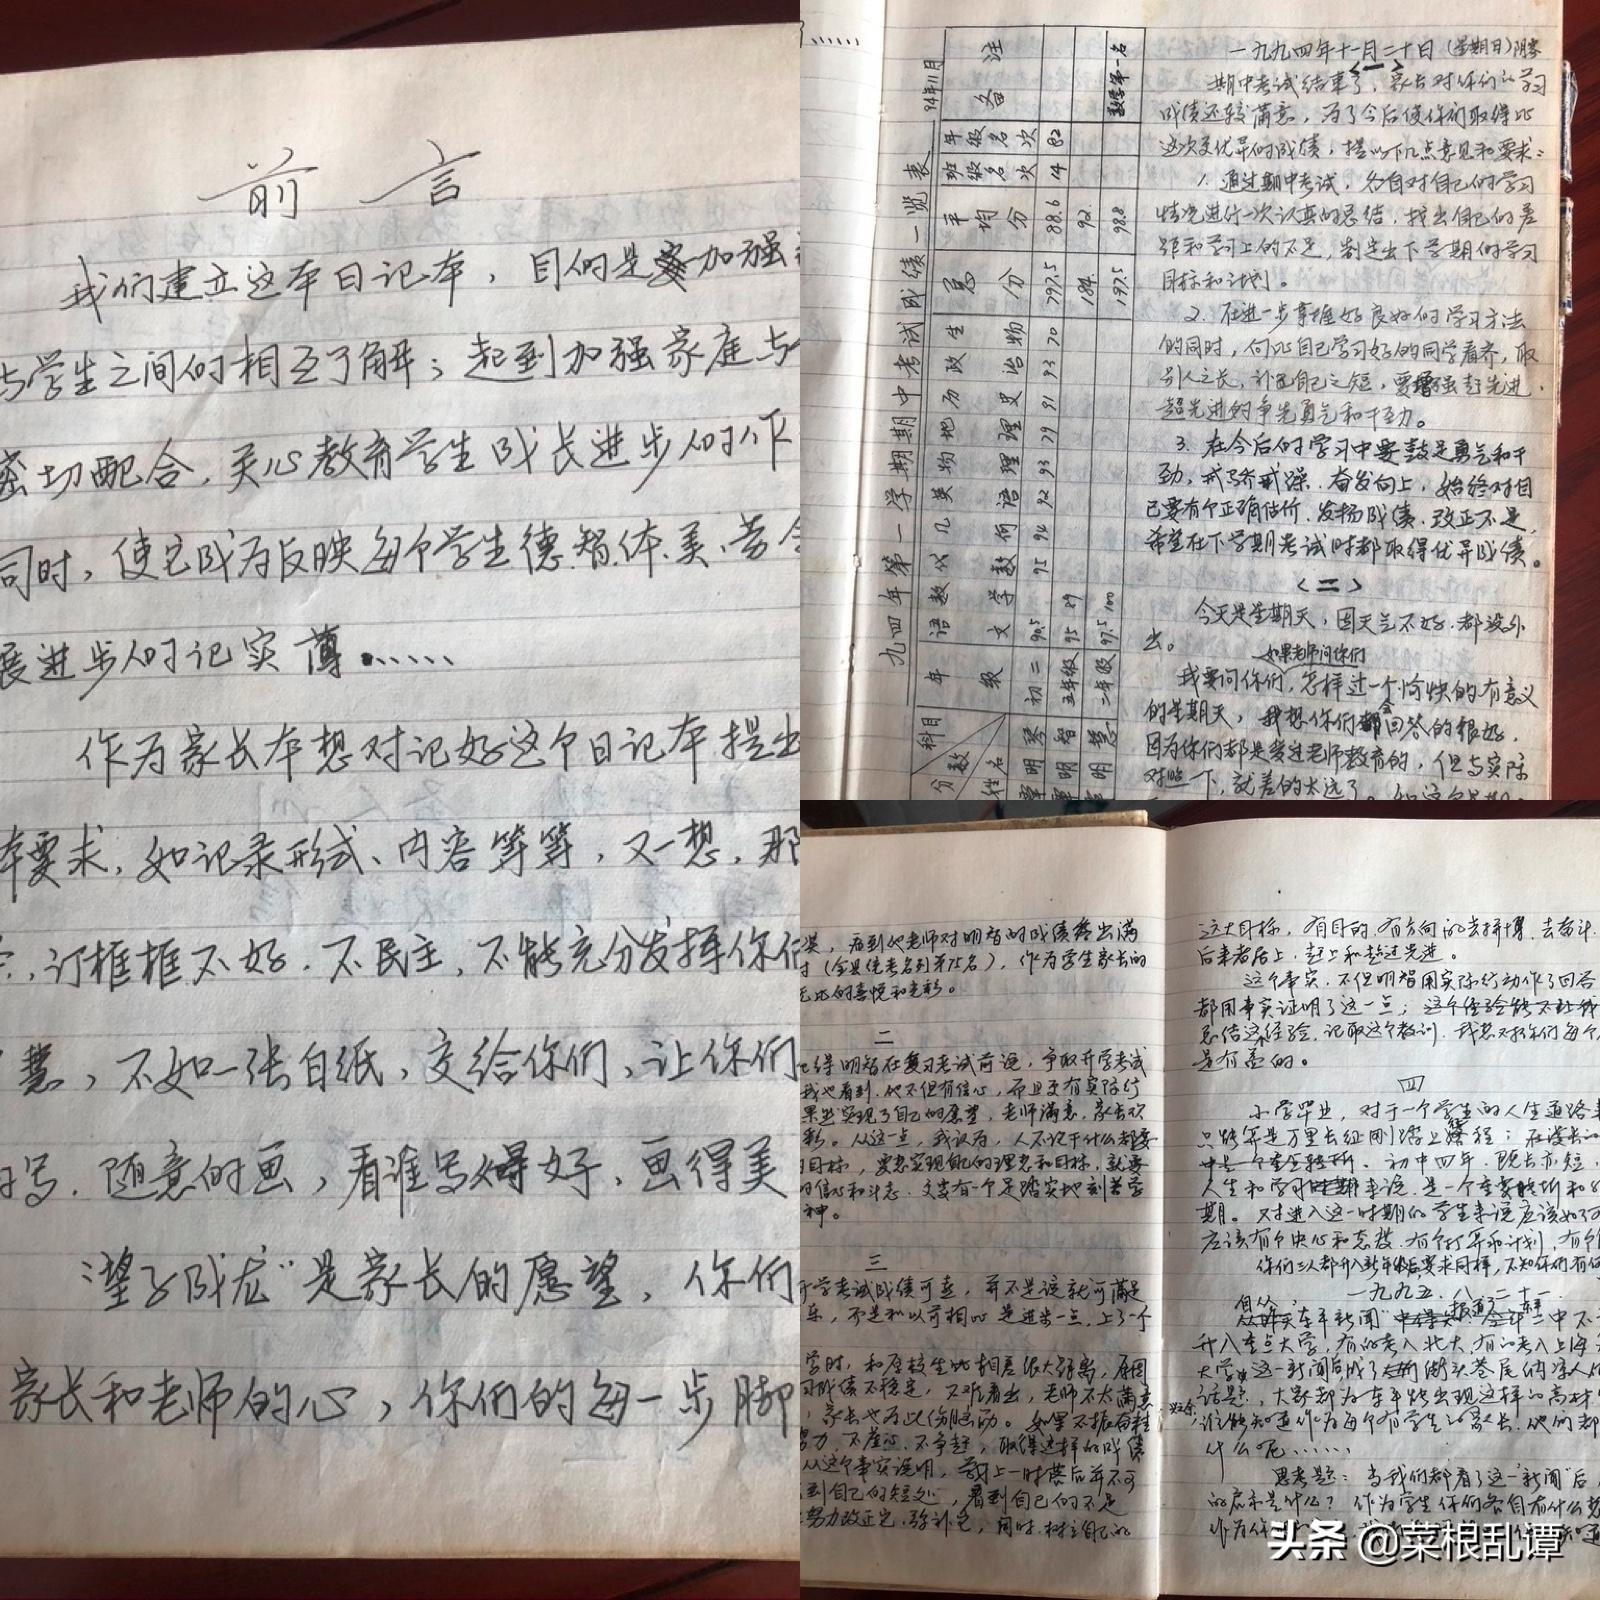 前言
我们建立这本日记本，目的是加强
与学生之间的相互了解；起到加强家庭与
密切配合，关心教育学生成长进步的作
同时，使它成为反映每个学生德.智.体.美.劳全
展进步的记实薄......
作为家长本想对记好这个日记本提出
本要求，如记录形式、内容等等，又一想，那
订框框不好.不民主，不能充分发挥你们
慧，不如一张白纸，交给你们，让你们
写.随意的画，看谁写得好，画得美
望子成龙”是家长的愿望，你们
家长和老师的心，你们的每一步脚
九四年第一学期期中考试成绩一览表 94年11月
科目 分数 姓名 年级 语文 数学 代数 几何 英语 物理 地理 历史 政治 生物 总分 平均分 班级名次 年级名次 备注
明琴 初二 90.5 95 94 92 93 79 91 93 70 797.5 88.6 14 82
明智 五年级 95 89 184 92
明慧 二年级 97.5 100 197.5 98.8 数学第一名
一九九四年十一月二十日(星期日)阴寒
<一>
期中考试结束了，家长对你们的学习
成绩还较满意，为了今后使你们取得比
这次更优异的成绩，提以下几点意见和要求：
1.通过期中考试，各自对自己的学习
情况进行一次认真的总结，找出自己的差
距和学习上的不足，制定出下学期的学习
目标和计划。
2.在进一步掌握好良好的学习方法
的同时，向比自己学习好的同学看齐，取
别人之长，补自己之短，要增强赶先进.
超先进的争先勇气和干劲。
3.在今后的学习中要鼓足勇气和干
劲，戒骄戒躁.奋发向上，始终对自
己要有个正确估价.发扬成绩.改正不足，
希望在下学期考试时都取得优异成绩。
<二>
今天是星期天，因天气不好.都没外
出。
如果老师问你们
我要问你们，怎样过一个愉快的有意义
的星期天，我想你们都会回答的很好，
因为你们都是受过老师教育的，但与实际
对照一下，就差的太远了。
看到他老师对明智的成绩答出满
(全县统考名列第75名)，作为学生家长的
无比的喜悦和光彩。
二
记得明智在复习考试前说，争取升学考试
我也看到.他不但有信心，而且更有实际行
果然实现了自己的愿望，老师满意，家长欢
彩。从这一点，我认为，人不论干什么都要
目标，要想实现自己的理想和目标，就要
的信心和斗志.更要有一个是踏实地刻苦学
神。
三
升学考试成绩可喜，并不是这就可满足
乐，而是和以前相比是进步一点，上了一个
学时，和原校生比相差很大距离，原因
习成绩不稳定，不难看出，老师不太满意
家长也为此伤脑筋。如果不振奋精
努力.不虚心.不争赶，取得这样的成绩
从这个事实说明，学习上一时落后并不可
到自己的短处，看到自己的不足
努力改正它.弥补它，同时.树立自己的
这大目标，有目的.有方向的去拼搏.去奋斗.
后来者居上，赶上和超过先进。
这个事实.不但明智用实际行动作了回答
都用事实证明了这一点；这个经验能不让我
总结这经验.记取这个教训.我想对你们每个
是有益的。
四
小学毕业，对于一个学生的人生道路来
只能算是万里长征刚踏上路程；在漫长的
中是一个重全转折.初中四年.既长亦短，
人生和学习时期来说.是一个重要转折和
期。对进入这一时期的学生来说应该如何
应该有个决心和态度.有个打算和计划，有个
你们三人都升入新年级后要求同样，不知你们有何
一九九五.八.二十一.
自从
在车平新闻”中报道了车平二中不
升入重点大学，有的考入北大.有的考入上海
大学这一新闻后成了街头巷尾的
话题，大家都为车平能出现这样的高材
谁能知道作为每个有学生的家长.他们都
什么呢......
思考题：当我们都看了这一“新闻”后，
的启示是什么？作为学生你们各自有什么想
头条 @菜根乱谭